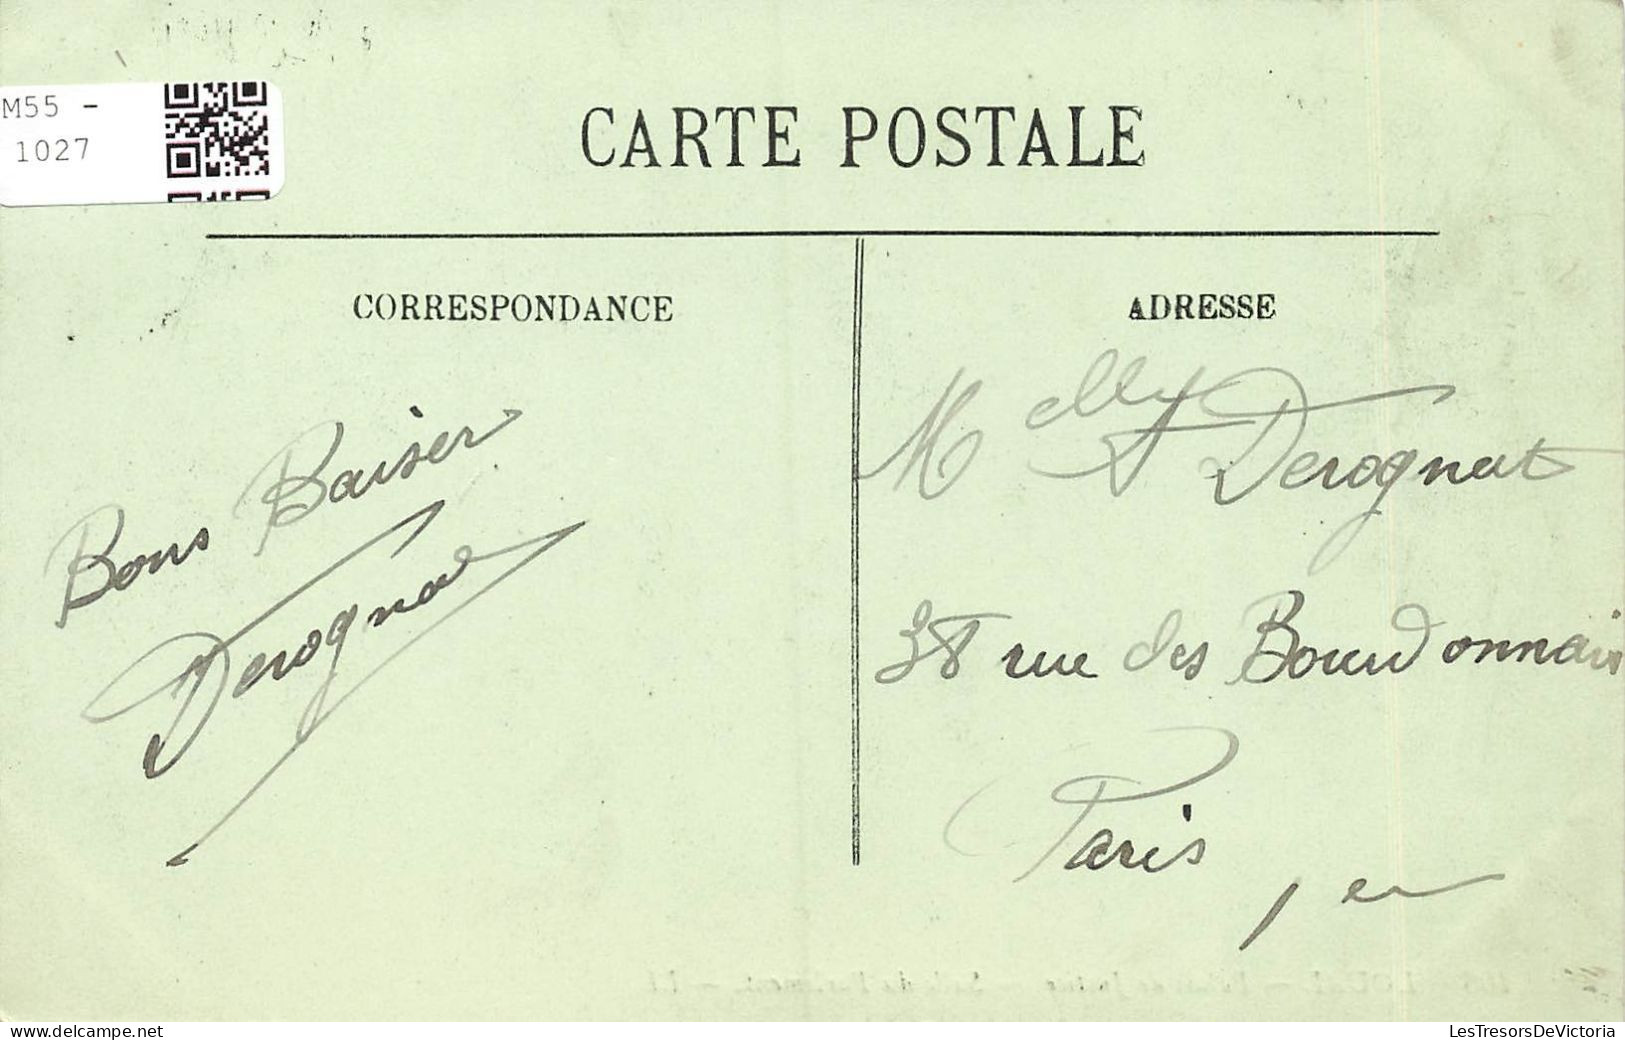 M55 -
1027
CARTE POSTALE
CORRESPONDANCE
ADRESSE
Bons Baiser
Derognat
Melle A Derognat
38 rue des Bourdonnais
Paris
1er
www.delcampe.net
LesTresorsDeVictoria